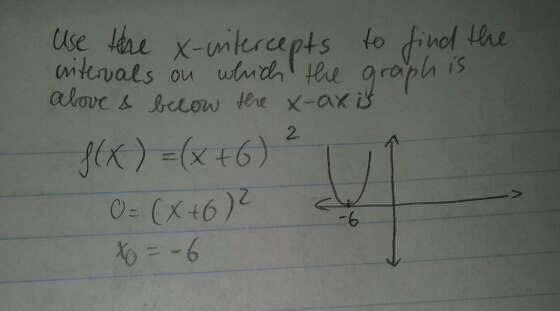 Use the x-intercepts to find the
intervals on which the graph is
above & below the x-axis
f(x) = (x+6)²
0 = (x+6)²
x₀ = -6
-6